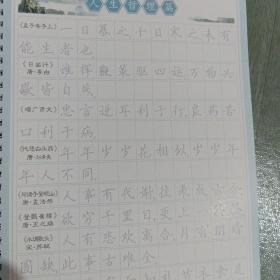 人生哲理篇
《孟子·告子上》 一日暴之十日寒之未有
能生者也
《日出行》唐·李白 谁挥鞭策驱四运万物兴
歇皆自然
《增广贤文》 忠言逆耳利于行,良药苦
口利于病
《代悲白头翁》 年年岁岁花相似岁岁年
年人不同
《与诸子登岘山》唐·孟浩然 人事有代谢往来成古今
《登鹳雀楼》唐·王之涣 欲穷千里目更上一
《水调歌头》宋·苏轼 人有悲欢离合月有阴晴
圆缺此事古难全